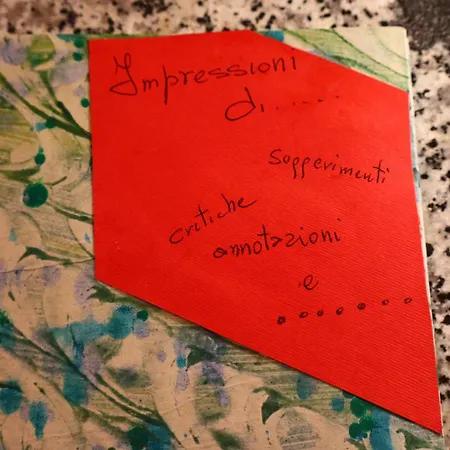 Impressioni
di.......
soggerimenti
critiche
annotazioni
e
.......